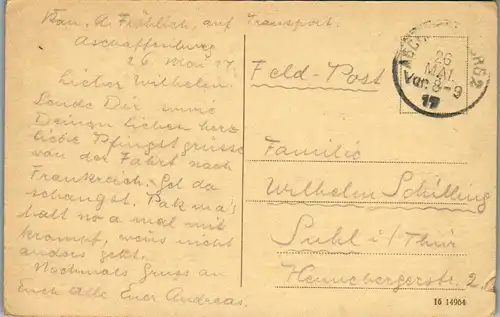 Kan. A. Fröhlich, auf Transport.
Aschaffenburg
26. Mai 17.
Lieber Wilhelm.
Sende Dir und
Deinen lieben herz
liche Pfingstgrüsse
von der Fahrt nach
Frankreich. Gel da
schaugst. Pak ma's
halt no a mal mit
krampf, wenns nicht
anders geht.
Nochmals Gruss an
Euch Alle Euer Andreas.
Feld-Post
26
MAI.
Vor. 8-9
17
Familie
Wilhelm Schilling
Suhl i/Thür
Hennebergerstr. 2.
16 14964